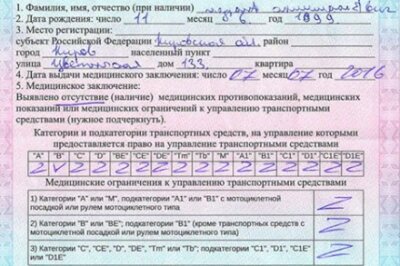 1. Фамилия, имя, отчество (при наличии)
2. Дата рождения: число 11 месяц 6. год 1999
3. Место регистрации:
субъект Российской Федерации Кировская обл.
город Киров населенный пункт
улица дом 133, квартира
4. Дата выдачи медицинского заключения: число 07 месяц 07 год 2016
5. Медицинское заключение:
Выявлено отсутствие (наличие) медицинских противопоказаний, медицинских
показаний или медицинских ограничений к управлению транспортными
средствами (нужное подчеркнуть).
Категории и подкатегории транспортных средств, на управление которыми
предоставляется право на управление транспортными средствами
"A" "B" "C" "D" "BE" "CE" "DE" "Tm" "Tb" "M" "A1" "B1" "C1" "D1" "C1E" "D1E"
Z V Z Z Z Z Z Z Z Z Z Z Z Z Z Z
Медицинские ограничения к управлению транспортными средствами
1) Категории "A" или "M", подкатегории "A1" или "B1" с мотоциклетной
посадкой или рулем мотоциклетного типа Z
2) Категории "B" или "BE"; подкатегории "B1" (кроме транспортных средств с
мотоциклетной посадкой или рулем мотоциклетного типа Z
3) Категории "C", "CE", "D", "DE", "Tm" или "Tb"; подкатегории "C1", "D1", "C1E"
или "D1E" Z